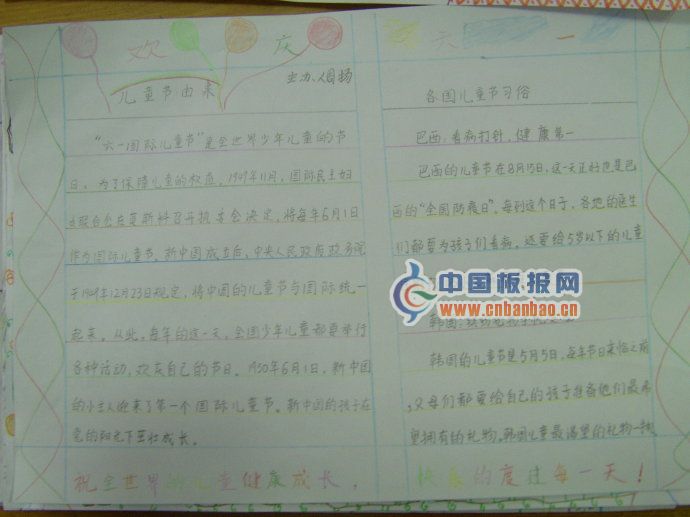 欢 庆
儿童节由来
主办人周扬
"六一国际儿童节"是全世界少年儿童的节
日、为了保障儿童的权益,1949年11月,国际民主妇
女联合会在莫斯科召开执委会决定,将每年6月1日
作为国际儿童节。新中国成立后,中央人民政府政务院
于1949年12月23日规定,将中国的儿童节与国际统一
起来。从此,每年的这一天,全国少年儿童都要举行
各种活动,欢庆自己的节日。1950年6月1日,新中国
的小主人迎来了第一个国际儿童节。新中国的孩子在
党的阳光下茁壮成长。
天 一
各国儿童节习俗
巴西:看病打针,健康第一
巴西的儿童节在8月15日,这一天正好也是巴
西的"全国防疫日"。每到这个日子,各地的医生
们都要为孩子们看病,还要给5岁以下的儿童
中国板报网
www.cnbanbao.cn
韩国:
韩国的儿童节是5月5日,每年节日来临之前
,父母们都要给自己的孩子准备他们最希
望拥有的礼物。韩国儿童最渴望的礼物一般
祝全世界的儿童健康成长,
快乐的度过每一天!